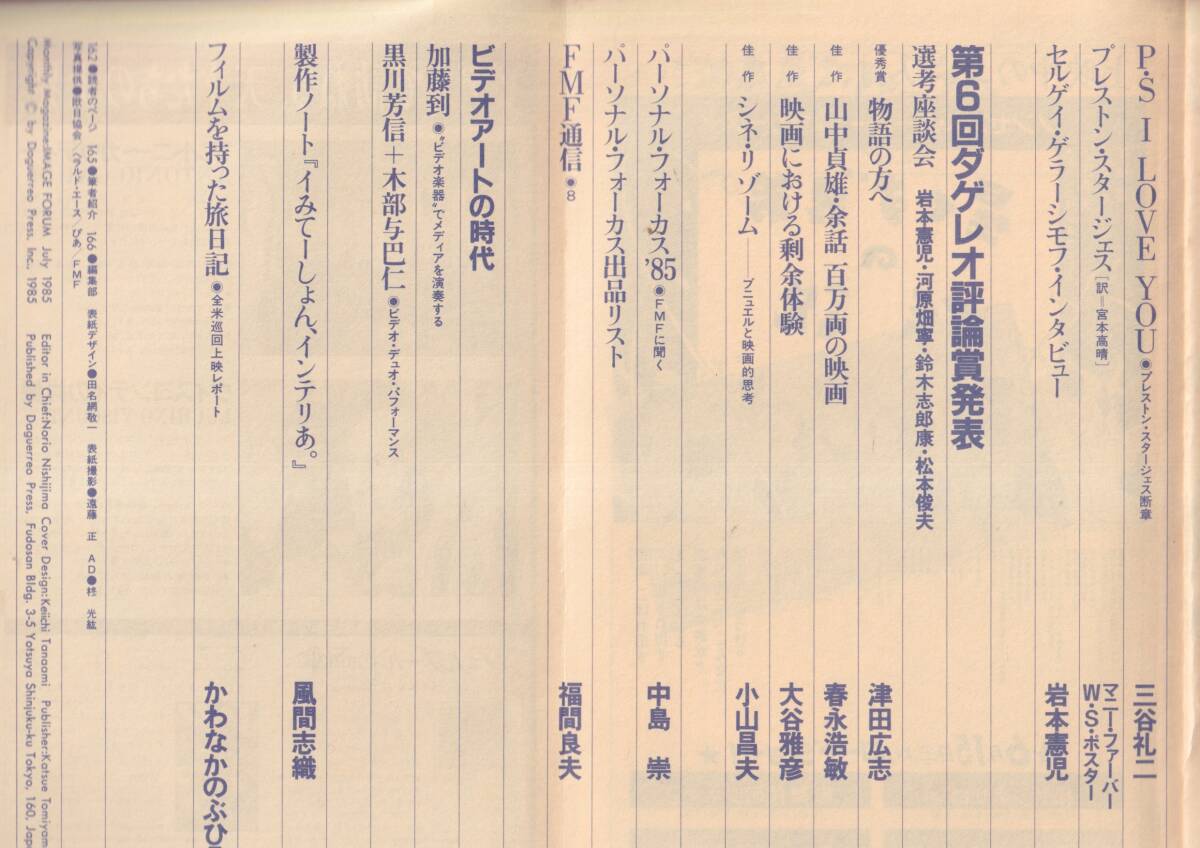 P・S I LOVE YOU●プレストン・スタージェス断章 三谷礼二
プレストン・スタージェス[訳=宮本高晴] マニー・ファーバー
W・S・ポスター
セルゲイ・ゲラーシモフ・インタビュー 岩本憲児
第6回ダゲレオ評論賞発表
選考座談会 岩本憲児・河原畑寧・鈴木志郎康・松本俊夫
優秀賞 物語の方へ 津田広志
佳作 山中貞雄・余話 百万両の映画 春永浩敏
佳作 映画における剰余体験 大谷雅彦
佳作 シネ・リゾーム ブニュエルと映画的思考 小山昌夫
パーソナル・フォーカス'85●FMFに聞く 中島 崇
パーソナル・フォーカス出品リスト
FMF通信●8 福間良夫
ビデオアートの時代
加藤到●“ビデオ楽器”でメディアを演奏する
黒川芳信+木部与巴仁●ビデオ・デュオ・パフォーマンス
製作ノート『イみてーしょん、インテリあ。』 風間志織
フィルムを持った旅日記●全米巡回上映レポート かわなかのぶひ
162●読者のページ 165●筆者紹介 166●編集部 表紙デザイン●田名網敬一 表紙撮影●遠藤 正 AD●柊 光紘
写真提供●獣目協会/ヘラルド・エース/ぴあ/FMF
Monthly Magazine:IMAGE FORUM July 1985 Editor in Chief:Norio Nishijima Cover Design:Keiichi Tanaami Publisher:Katsue Tomiyam
Copyright © by Daguerreo Press, Inc., 1985 Published by Daguerreo Press, Fudosan Bldg. 3-5 Yotsuya Shinjuku-ku Tokyo, 160, Japa